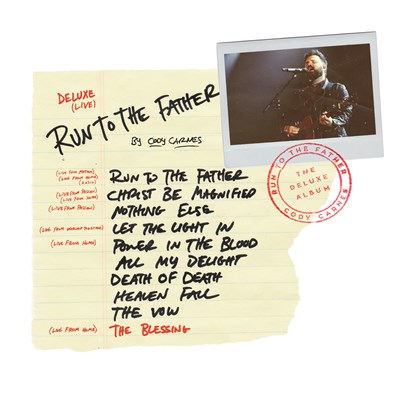 DELUXE
(LIVE)
RUN TO THE FATHER
BY CODY CARNES
(LIVE FROM PASSION)
(LIVE FROM HOME)
(RADIO)
RUN TO THE FATHER
(LIVE FROM PASSION)
(LIVE FROM HOME)
CHRIST BE MAGNIFIED
(LIVE FROM PASSION)
NOTHING ELSE
LET THE LIGHT IN
(LIVE FROM HOME)
POWER IN THE BLOOD
ALL MY DELIGHT
DEATH OF DEATH
HEAVEN FALL
THE VOW
(LIVE FROM HOME)
THE BLESSING
RUN TO THE FATHER
THE
DELUXE
ALBUM
CODY CARNES